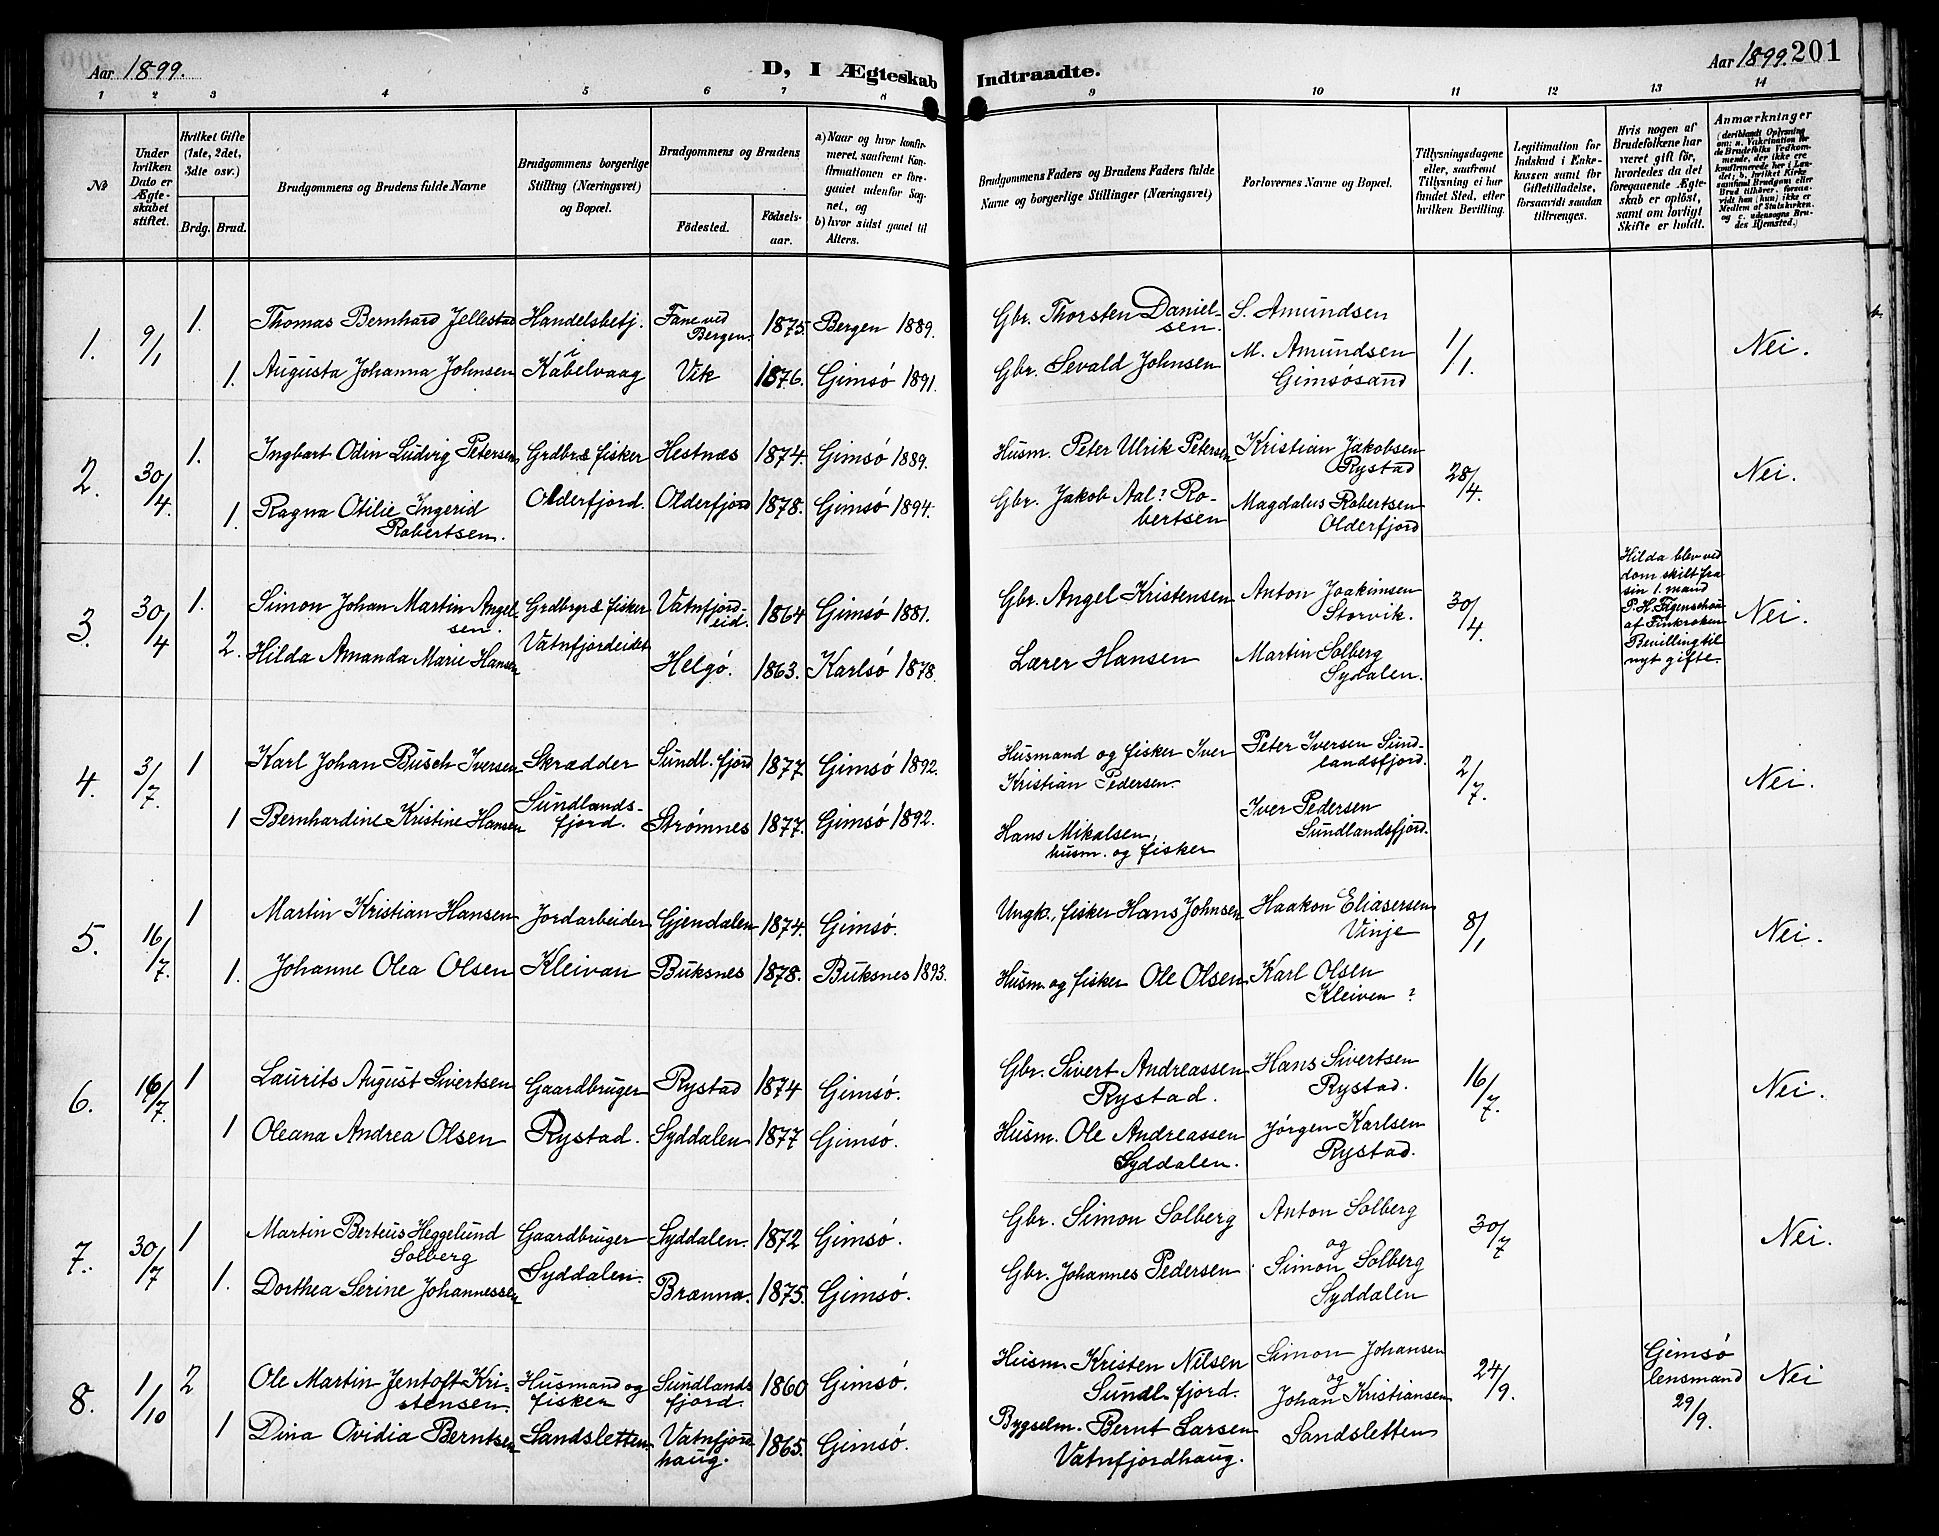 Aar 1899.
D, I Ægteskab Indtraadte.
Aar 1899. 201
1 2 3 4 5 6 7 8 9 10 11 12 13 14
No
Under hvilken Dato er Ægteskabet stiftet.
Hvilket Gifte (1ste, 2det, 3die osv.)
Brdg. Brud.
Brudgommens og Brudens fulde Navne
Brudgommens borgerlige Stilling (Næringsvei) og Bopæl.
Brudgommens og Brudens
Fødested. Fødselsaar.
a) Naar og hvor konfirmeret, saafremt Konfirmationen er foregaaet udenfor Sognet, og
b) hvor sidst gaaet til Alters.
Brudgommens Faders og Brudens Faders fulde Navne og borgerlige Stillinger (Næringsvei)
Forlovernes Navne og Bopæl.
Tillysningsdagene eller, saafremt Tillysning ei har fundet Sted, efter hvilken Bevilling.
Legitimation for Indskud i Enkekassen samt for Giftetilladelse, forsaavidt saadan tiltrænges.
Hvis nogen af Brudefolkene har været gift før, hvorledes da det foregaaende Ægteskab er opløst, samt om lovligt Skifte er holdt.
Anmærkninger
(deriblandt Oplysning om: a. Vakcination for de Brudefolks Vedkommende, der ikke ere konfirmerede her i Landet; b. hvilket Kirkesamfund Brudgom eller Brud tilhører, forsaavidt han (hun) ikke er Medlem af Statskirken, og c. udensogns Brudes Hjemsted.)
1. 9/1 1. Thomas Bernhard Jellestad Handelsbetj. Fane ved Bergen. 1875. Bergen 1889. Gbr. Thorsten Danielsen. S. Amundsen 1/1. Nei.
1. Augusta Johanna Johnsen i Kabelvaag Vik 1876. Gimsó 1891. Gbr. Sevald Johnsen M. Amundsen Gimsósand
2. 30/4 1. Ingbart Odin Ludvig Petersen Grdbr. & fisker Hestnæs 1874. Gimsó 1889. Husm. Peter Ulrik Petersen Kristian Jakobsen Rystad 28/4. Nei.
1. Ragna Otilie Ingerid Robertsen. Olderfjord. Olderfjord 1878. Gimsó 1894. Gbr. Jakob Aal? Robertsen Magdalus Robertsen Olderfjord
3. 30/4 1. Simon Johan Martin Angelsen. Grdbrgr & fisker Vatnfjordeid. 1864 Gimsó 1881. Gbr. Angel Kristensen Anton Joakimsen Storvik. 30/4. Nei.
2. Hilda Amanda Marie Hansen Vatnfjordeidet Helgó. 1863. Karlsó 1878. Lærer Hansen Martin Solberg Sydalen.
Hilda blev ved
dom skilt fra
sin 1. mand
P. H. Figenschou
af Finkroken
Bevilling til
nyt gifte.
4. 3/7 1 Karl Johan Busch Iversen Skrædder Sundl. fjord 1877 Gimsó 1892. Husmand og fisker Iver Kristian Pedersen. Peter Iversen Sundlandsfjord. 2/7. Nei.
1 Bernhardine Kristine Hansen Sundlandsfjord. Strømnes 1877. Gimsó 1892. Hans Mikalsen, husm. og fisker Iver Pedersen Sundlandsfjord.
5. 16/7. 1 Martin Kristian Hansen Jordarbeider Gjendalen 1874. Gimsó. Ungk., fisker Hans Johnsen Haakon Eliasersen Vinje 8/1 Nei.
1. Johanne Olea Olsen Kleivan Buksnes 1878. Buksnes 1893. Husm. og fisker Ole Olsen Karl Olsen Kleiven ?
6. 16/7. 1 Laurits August Sivertsen Gaardbruger Rystad 1874 Gimsó. Gbr. Sivert Andreassen Rystad. Hans Sivertsen Rystad. 16/7. Nei.
1 Oleana Andrea Olsen Rystad. Syddalen 1877 Gimsó. Husm. Ole Andreassen Syddalen. Jórgen Karlsen Rystad.
7. 30/7 1 Martin Berteus Heggelund Solberg Gaardbruger Syddalen. 1872 Gimsó. Gbr. Simon Solberg Anton Solberg og 30/7 Nei.
1. Dorthea Serine Johannessen Syddalen. Brænna. 1875. Gimsó. Gbr. Johannes Pedersen Simon Solberg Syddalen
8. 1/10 2 Ole Martin Jentoft Kristensen. Husmand og fisker Sundlandsfjord. 1860 Gimsó. Husm. Kristen Nilsen Sundl. fjord. Simon Johansen og 24/9. Gimsó lensmand 29/9. Nei
1 Dina Ovidia Berntsen Sandsletten Vatnfjordhaug. 1865. Gimsó. Bygselm. Bernt Larsen Vatnfjordhaug. Johan Kristiansen Sandsletten